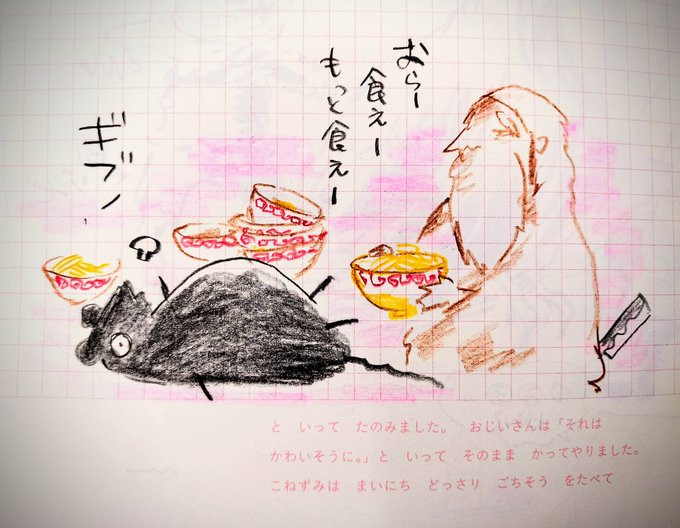 おらー
食えー
もっと食えー
ギブ！
と　いって　たのみました。　おじいさんは「それは
かわいそうに。」と　いって　そのまま　かってやりました。
こねずみは　まいにち　どっさり　ごちそう　をたべて